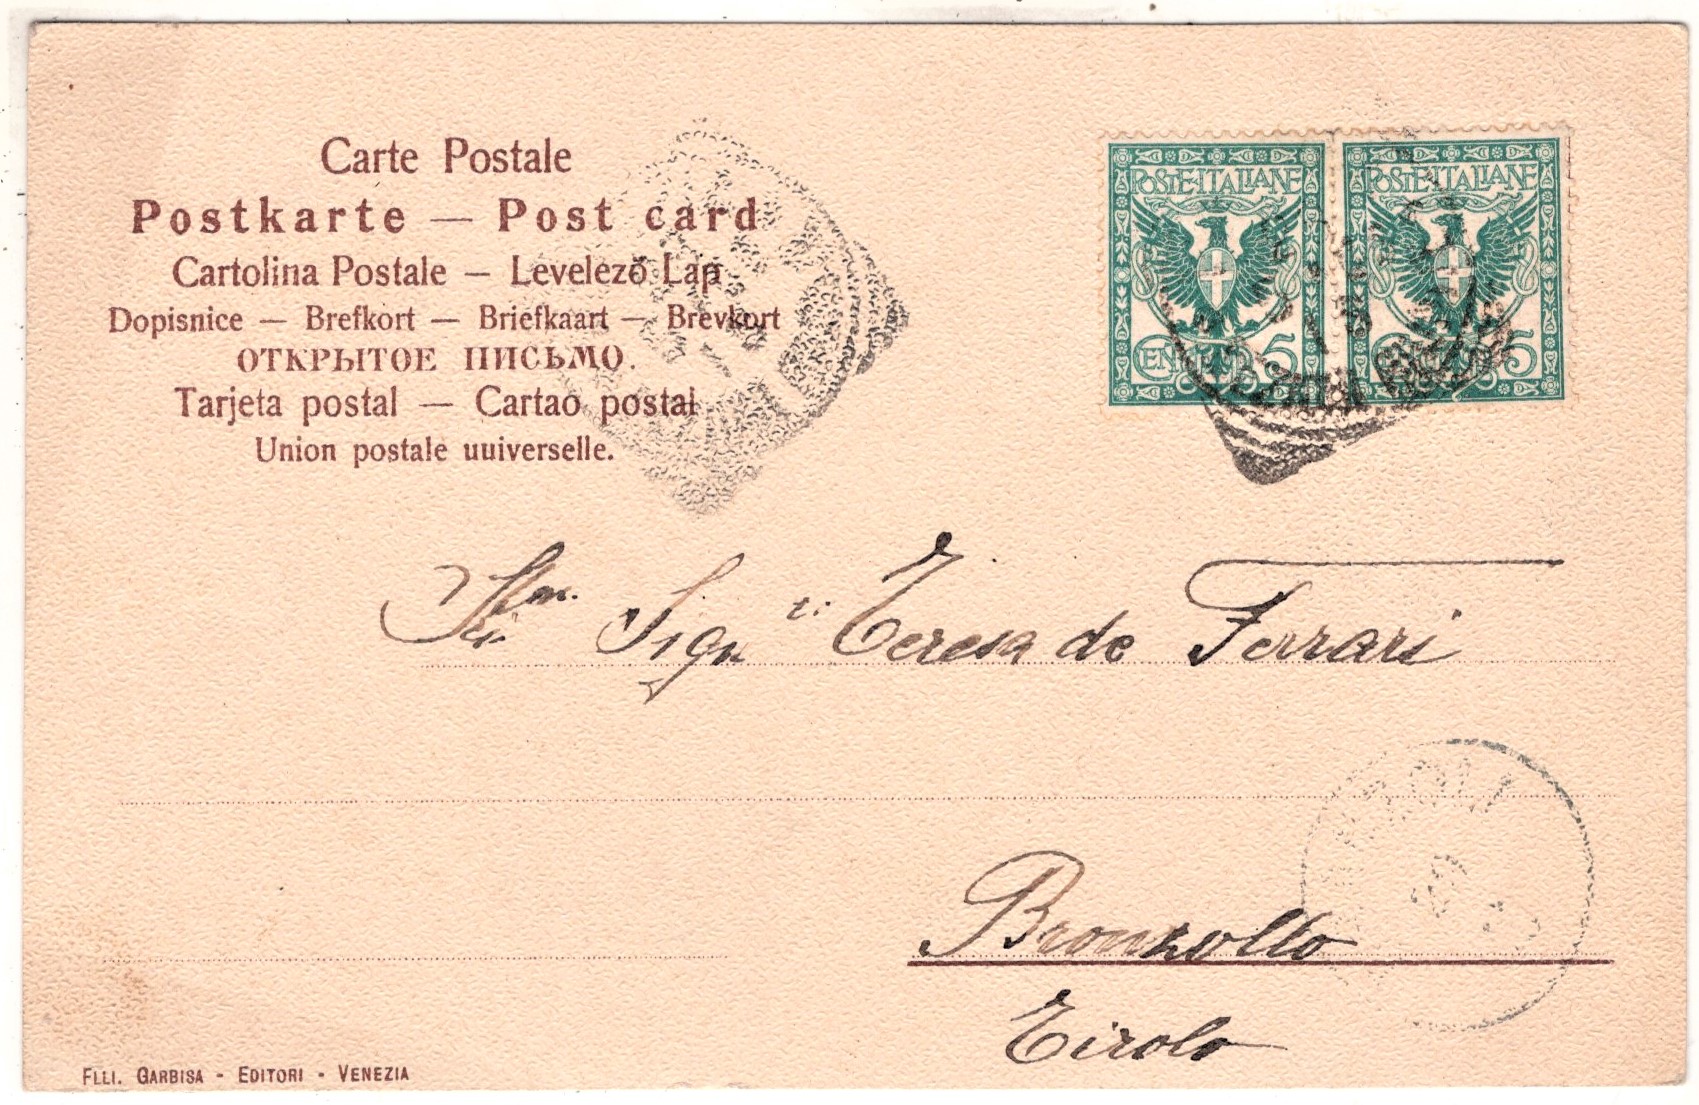 Carte Postale
Postkarte — Post card
Cartolina Postale — Levelező Lap
Dopisnice — Brefkort — Briefkaart — Brevkort
ОТКРЫТОЕ ПИСЬМО.
Tarjeta postal — Cartao postal
Union postale uuiverselle.
POSTE·ITALIANE
CEN. 5
POSTE·ITALIANE
5
Sign Teresa de Ferrari
Bronzollo
Tirolo
FLLI. GARBISA - EDITORI - VENEZIA